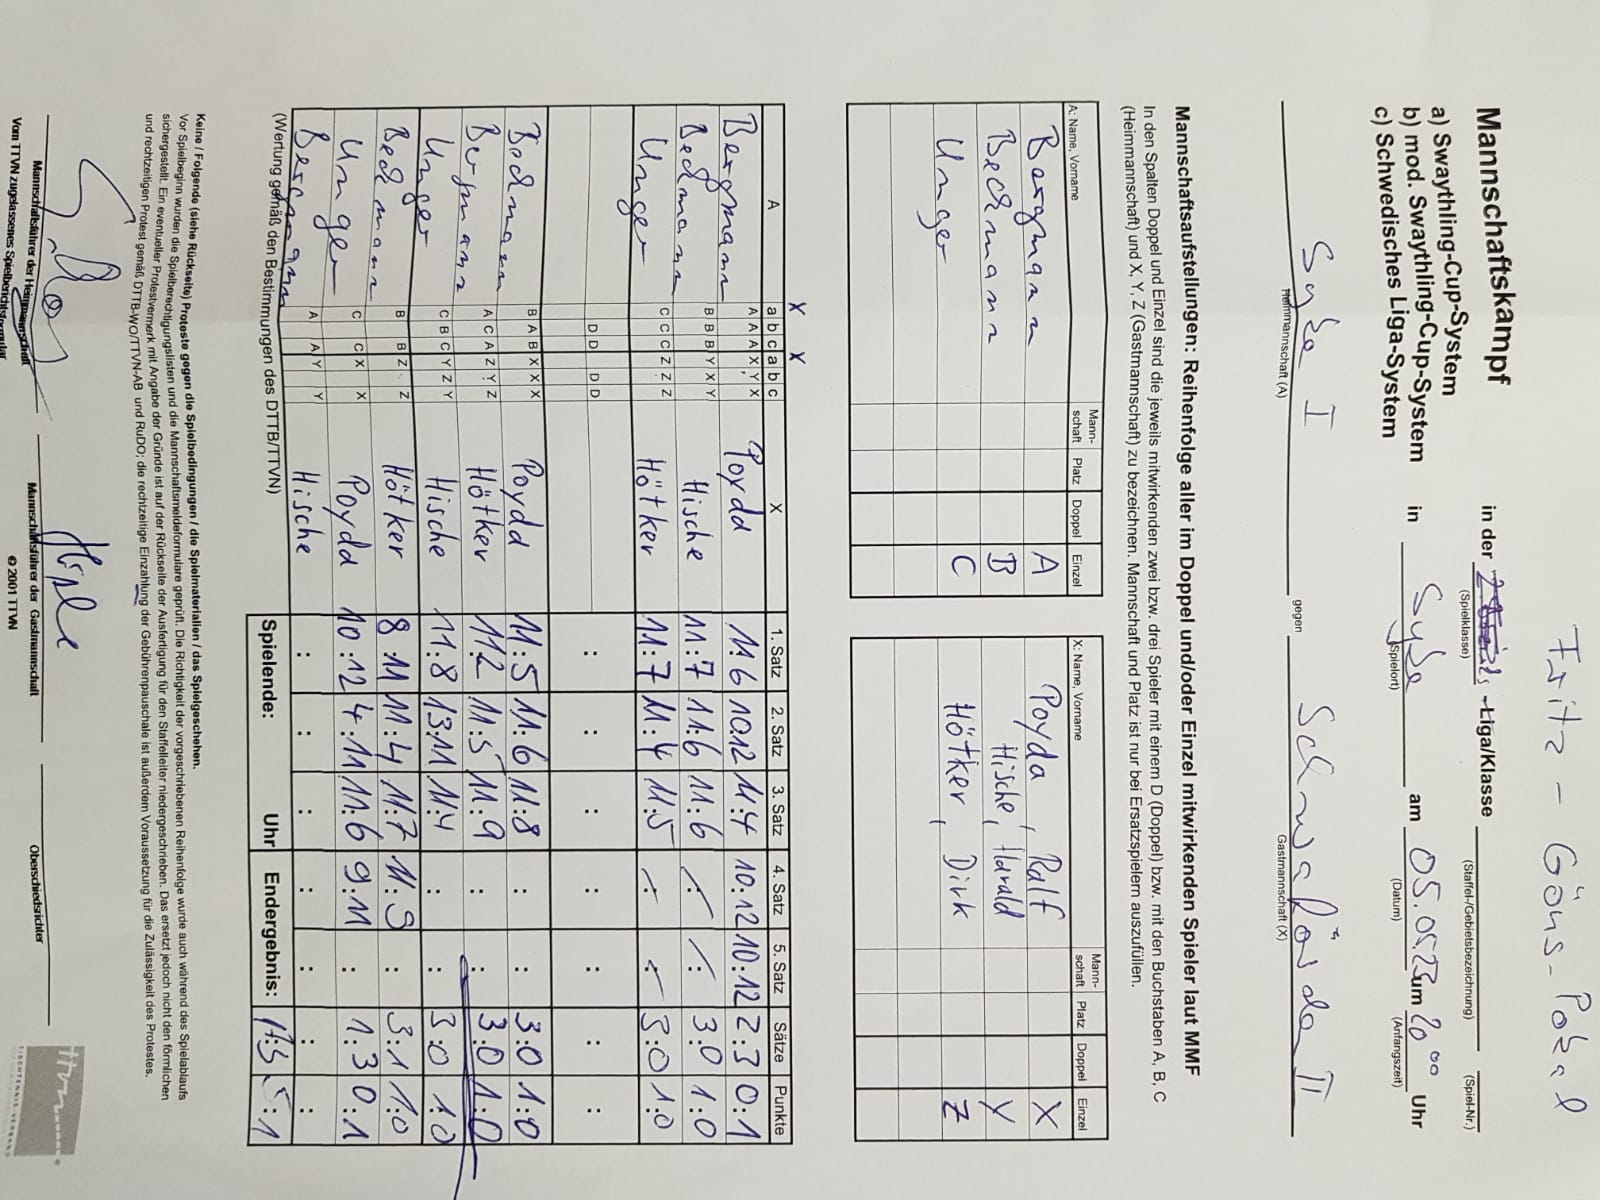 Fritz - Göns - Pokal
Mannschaftskampf
in der -Liga/Klasse
(Spielklasse) (Staffel-/Gebietsbezeichnung) (Spiel-Nr.)
a) Swaythling-Cup-System
b) mod. Swaythling-Cup-System
c) Schwedisches Liga-System
in Syke am 05.05.23 um 20°° Uhr
(Spielort) (Datum) (Anfangszeit)
Syke I gegen Schwaförden II
Heimmannschaft (A) Gastmannschaft (X)
Mannschaftsaufstellungen: Reihenfolge aller im Doppel und/oder Einzel mitwirkenden Spieler laut MMF
In den Spalten Doppel und Einzel sind die jeweils mitwirkenden zwei bzw. drei Spieler mit einem D (Doppel) bzw. mit den Buchstaben A, B, C
(Heimmannschaft) und X, Y, Z (Gastmannschaft) zu bezeichnen. Mannschaft und Platz ist nur bei Ersatzspielern auszufüllen.
A: Name, Vorname Mann-schaft Platz Doppel Einzel X: Name, Vorname Mann-schaft Platz Doppel Einzel
Bergmann A Poyda, Ralf X
Beckmann B Hische, Harald Y
Unger C Hötker, Dirk Z
X X
A a b c a b c X 1. Satz 2. Satz 3. Satz 4. Satz 5. Satz Sätze Punkte
Bergmann A A A X Y X Poyda 11:6 10:12 11:4 10:12 10:12 2:3 0:1
Beckmann B B B Y X Y Hische 11:7 11:6 11:6 3:0 1:0
Unger C C C Z Z Z Hötker 11:7 11:4 11:5 3:0 1:0
D D D D : : : : : : :
Beckmann B A B X X X Poyda 11:5 11:6 11:8 : : 3:0 1:0
Bergmann A C A Z Y Z Hötker 11:2 11:5 11:9 : : 3:0 1:0
Unger C B C Y Z Y Hische 11:8 13:11 11:4 : : 3:0 1:0
Beckmann B B Z Z Hötker 8:11 11:4 11:7 11:9 : 3:1 1:0
Unger C C X X Poyda 10:12 4:11 11:6 9:11 : 1:3 0:1
Bergmann A A Y Y Hische : : : : : : :
(Wertung gemäß den Bestimmungen des DTTB/TTVN) Spielende: Uhr Endergebnis: 5:1
Keine / Folgende (siehe Rückseite) Proteste gegen die Spielbedingungen / die Spielmaterialien / das Spielgeschehen.
Vor Spielbeginn wurden die Spielberechtigungslisten und die Mannschaftsmeldeformulare geprüft. Die Richtigkeit der vorgeschriebenen Reihenfolge wurde auch während des Spielablaufs
sichergestellt. Ein eventueller Protestvermerk mit Angabe der Gründe ist auf der Rückseite der Ausfertigung für den Staffelleiter niedergeschrieben. Das ersetzt jedoch nicht den förmlichen
und rechtzeitigen Protest gemäß DTTB-WO/TTVN-AB und RuDO; die rechtzeitige Einzahlung der Gebührenpauschale ist außerdem Voraussetzung für die Zulässigkeit des Protestes.
Mannschaftsführer der Heimmannschaft Mannschaftsführer der Gastmannschaft Oberschiedsrichter
Vom TTVN zugelassenes Spielberichtsformular © 2001 TTVN
ttvn
TISCHTENNIS-VERBAND